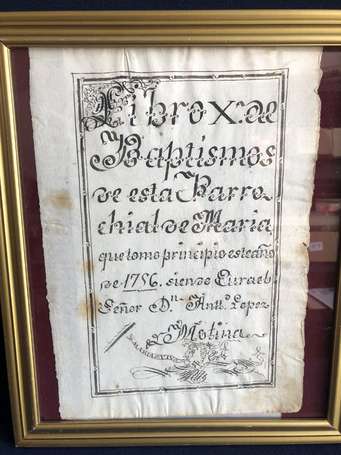 Libro X.º de
Baptismos
de esta Parro
chial de Maria,
que tomo principio este año
de 1756. siendo Cura el
Señor D.n Antt.o Lopez
Molina